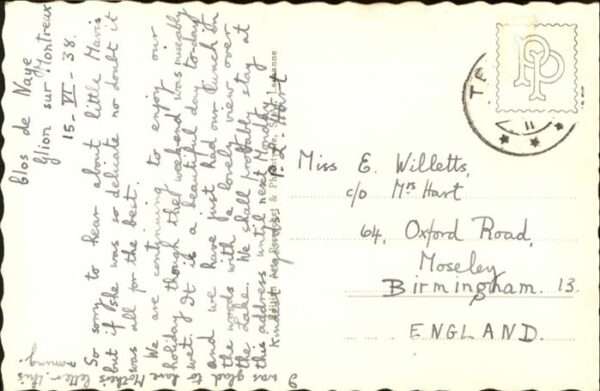 Clos de Naye
Glion sur Montreux
15 - VI - 38.
So sorry to hear about little Mavis
but if she was so delicate no doubt it
was all for the best.
We are continuing to enjoy our
holiday, though the weekend was miserably
wet. It is a beautiful day to-day
and we have just had our lunch in
the woods with a lovely view over
the Lake. We shall probably stay at
this address until next Monday.
Kindest regards P. L. Hart
I was glad to have Mother's letter this
morning.
Miss E. Willetts,
c/o Mrs Hart
64, Oxford Road,
Moseley
Birmingham. 13.
ENGLAND.